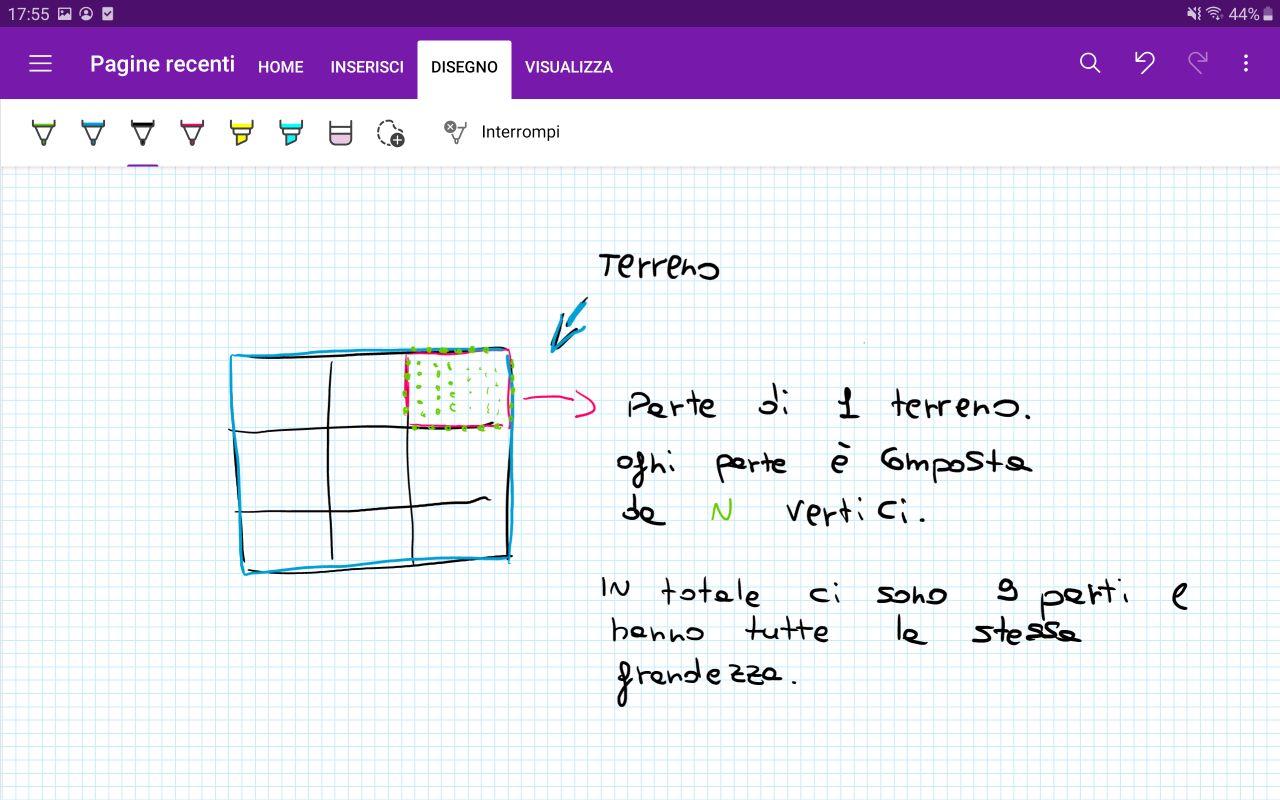 17:55 44%
Pagine recenti HOME INSERISCI DISEGNO VISUALIZZA
Interrompi
Terreno
Parte di 1 terreno.
ogni parte è composta
da N vertici.
IN totale ci sono 9 parti e
hanno tutte la stessa
grandezza.